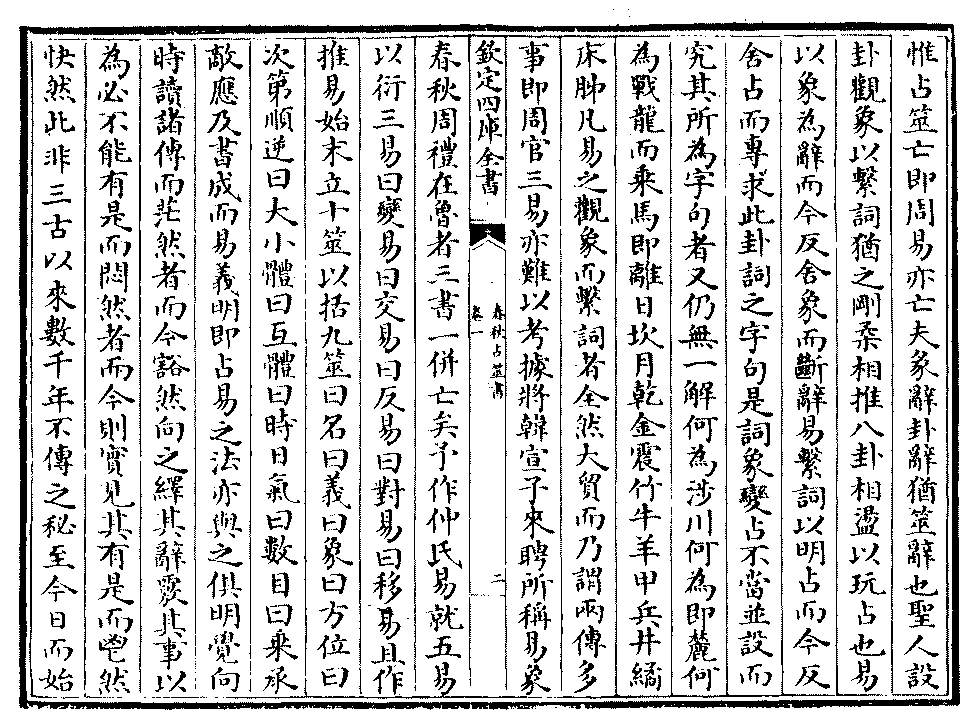 惟占筮亡即周易亦亡夫象辭卦辭猶筮辭也聖人設
卦觀象以繫詞猶之剛柔相推八卦相盪以玩占也易
以象為辭而今反舍象而斷辭易繫詞以明占而今反
舍占而專求此卦詞之字句是詞象變占不當並設而
究其所為字句者又仍無一解何為涉川何為即麓何
為戰龍而乘馬即離日坎月乾金震竹牛羊甲兵井繘
床腁凡易之觀象而繫詞者全然大貿而乃謂兩傳多
事即周官三易亦難以考據將韓宣子來聘所稱易象
欽定四庫全書
春秋占筮書
卷一
二
春秋周禮在魯者三書一併亡矣予作仲氏易就五易
以衍三易曰變易曰交易曰反易曰對易曰移易且作
推易始末立十筮以括九筮曰名曰義曰象曰方位曰
次第順逆曰大小體曰互體曰時日氣曰數目曰乘承
敵應及書成而易義明即占易之法亦與之俱明覺向
時讀諸傳而茫然者而今豁然向之繹其辭覈其事以
為必不能有是而悶然者而今則實見其有是而鬯然
快然此非三古以來數千年不傳之秘至今日而始